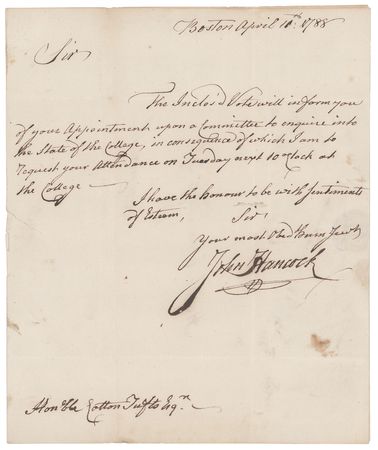 Boston April 10th: 1788
Sir
The Inclos'd Vote will inform you
of your Appointment upon a Committee to enquire into
the State of the College, in consequence of which I am to
request your Attendance on Tuesday next 10 oClock at
the College
I have the honour to be with Sentiments
of Esteem,
Sir
Your most Obed Hum Servt
John Hancock
Honble Cotton Tufts Esqr